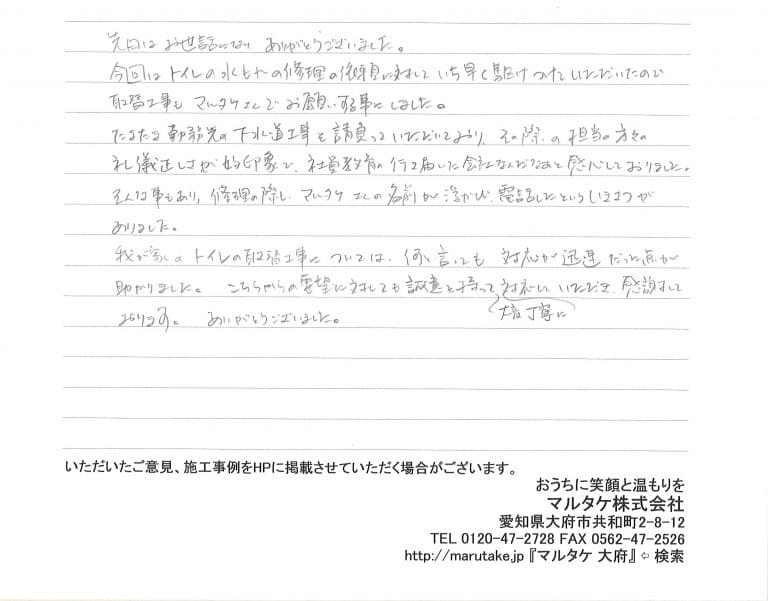 先日はお世話になり ありがとうございました。
今回はトイレの水もれの修理の依頼に対していち早く駆けつけていただいたので
取替工事も マルタケさんでお願いする事にしました。
たまたま勤務先の下水道工事を請負っていただいており、その際の担当の方々の
礼儀正しさが好印象で、社員教育の行き届いた会社なんだなあと感心しておりました。
そんな事もあり、修理の際に マルタケさんの名前が浮かび、電話したというしだいで
ありました。
我が家のトイレの取替工事については、何と言っても 対応が迅速だった点が
助かりました。 こちらからの要望に対しても誠意を持って対応していただき、感謝して
大変丁寧に
おります。 ありがとうございました。
いただいたご意見、施工事例をHPに掲載させていただく場合がございます。
おうちに笑顔と温もりを
マルタケ株式会社
愛知県大府市共和町2-8-12
TEL 0120-47-2728 FAX 0562-47-2526
http://marutake.jp 『マルタケ 大府』 ⇦ 検索